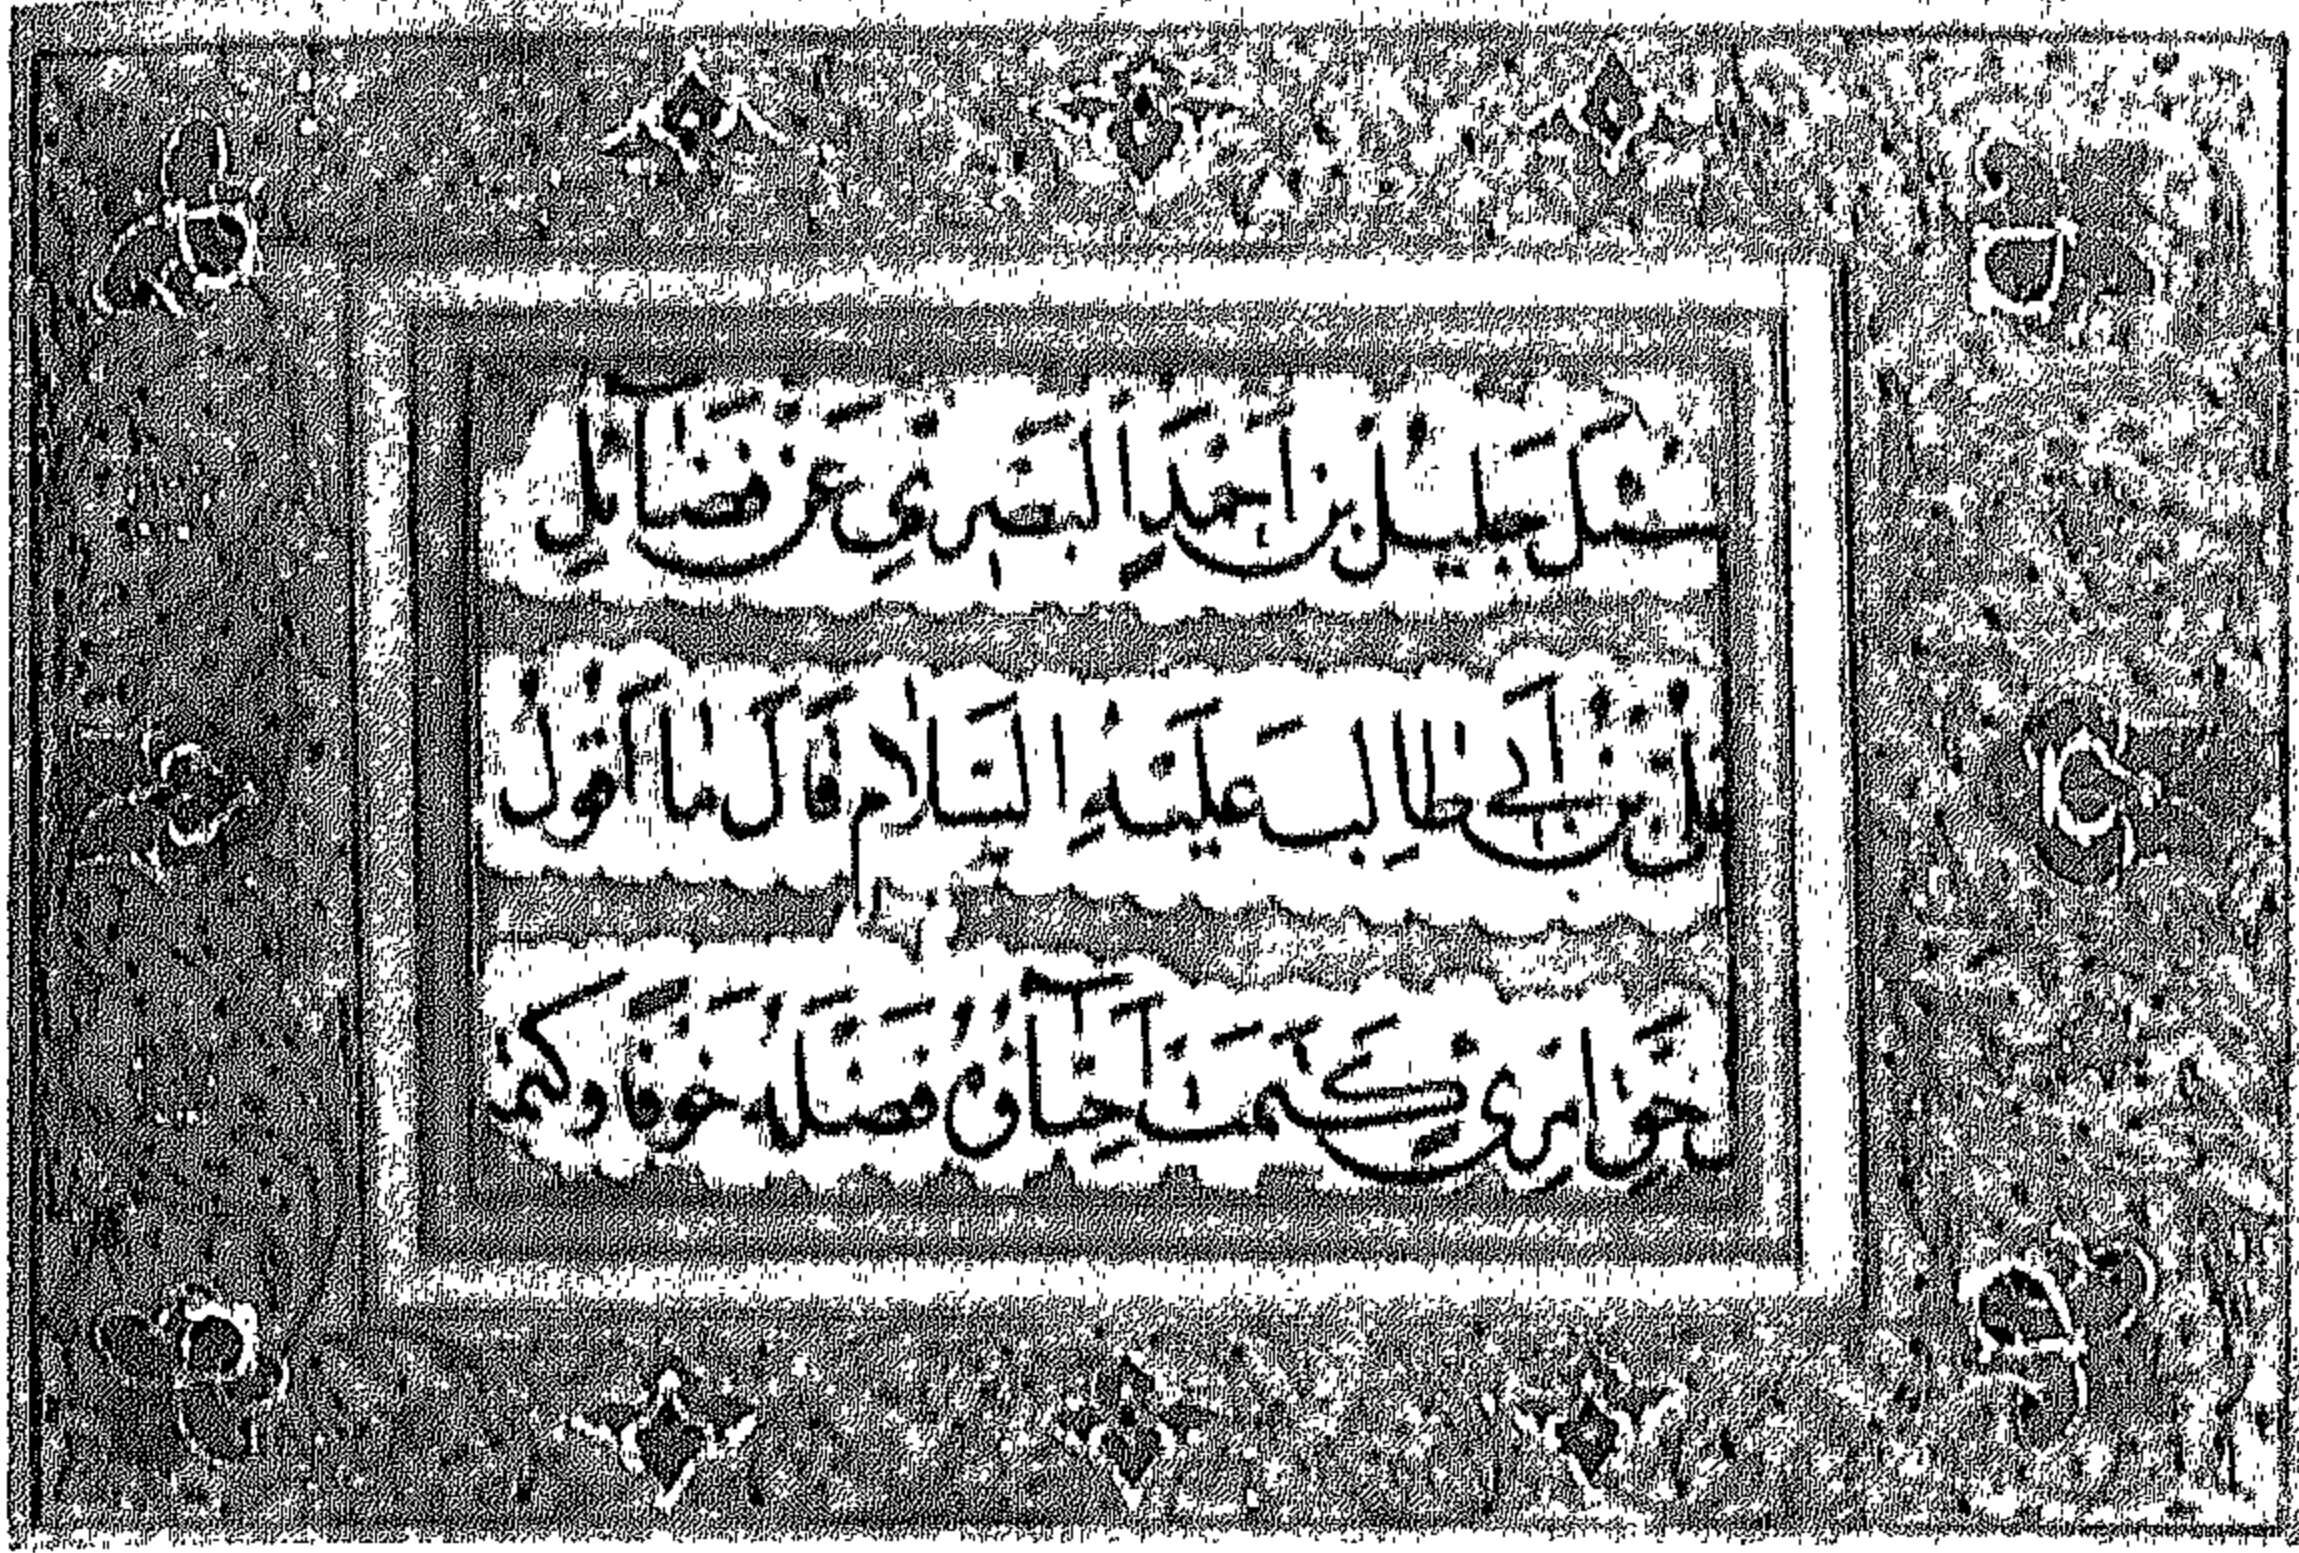 سئل جليل بن احمد البصري عن فضآئل
علي بن ابي طالب عليه السلام قال ما اقول
في حق امرئ كتمت فضله خوفا